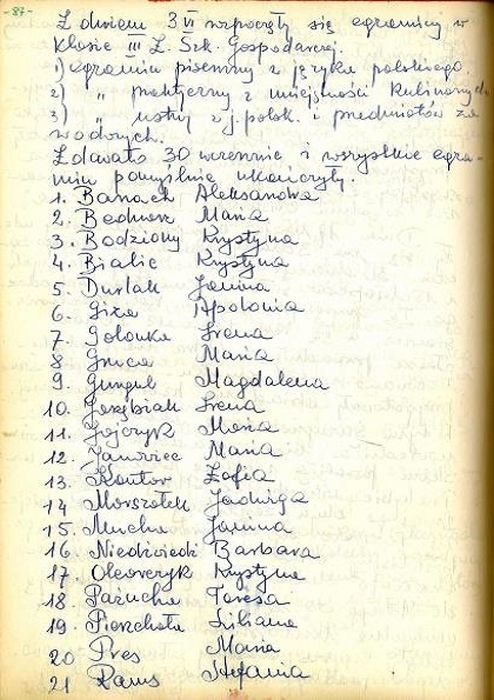 -87-
Z dniem 3 VI rozpoczęły się egzaminy w
klasie III Z. Szk. Gospodarczej.
1) egzamin pisemny z języka polskiego.
2) " praktyczny z umiejętności kulinarnych
3) " ustny z j. polsk. i przedmiotów za
wodowych.
Zdawało 30 uczennic i wszystkie egza-
min pomyślnie ukończyły.
1. Banach Aleksandra
2. Bednarz Maria
3. Bodziony Krystyna
4. Bialic Krystyna
5. Duslak Janina
6. Giza Apolonia
7. Gołonka Irena
8 Gruca Maria
9. Gungul Magdalena
10. Jarzębiak Irena
11. Jojczyk Maria
12. Janowiec Maria
13. Kantor Zofia
14 Marszałek Jadwiga
15. Mucha Janina
16. Niedźwiedź Barbara
17. Olearczyk Krystyna
18 Pażucha Teresa
19. Pierzchała Liliana
20 Pres Maria
21 Rams Stefania